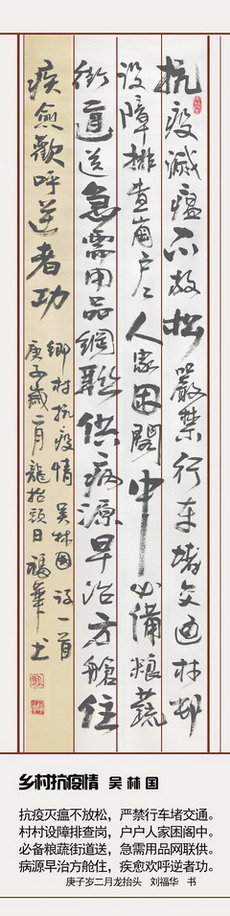 抗疫滅瘟不放松嚴禁行车堵交通村邨
设障排查崗户々人家困閣中必備粮蔬
街道送急需用品網聯供病源早治方舱住
疾愈歡呼逆者功
鄉村抗疫情 吴林國 诗一首
庚子歲二月龍抬頭日 福華书
乡村抗疫情 吴林国
抗疫灭瘟不放松，严禁行车堵交通。
村村设障排查岗，户户人家困阁中。
必备粮蔬街道送，急需用品网联供。
病源早治方舱住，疾愈欢呼逆者功。
庚子岁二月龙抬头 刘福华 书